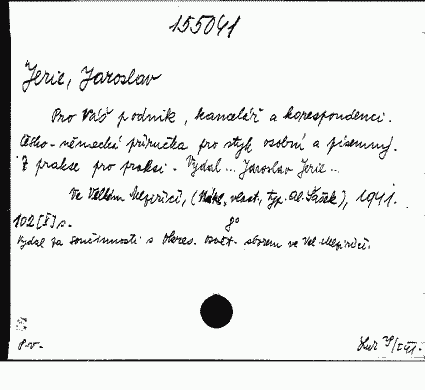 155041
Jerie, Jaroslav
Pro Váš podnik, kancelář a korespondenci.
Česko-německá příručka pro styk osobní a písemný.
Z prakse pro praksi. Vydal ... Jaroslav Jerie ...
Ve Velkém Meziříčí, (Nákl. vlast., typ. Al. Šašek), 1941.
102 [I] s. 8°
Vydal za součinnosti s Okres. osvět. sborem ve Vel. Meziříčí.